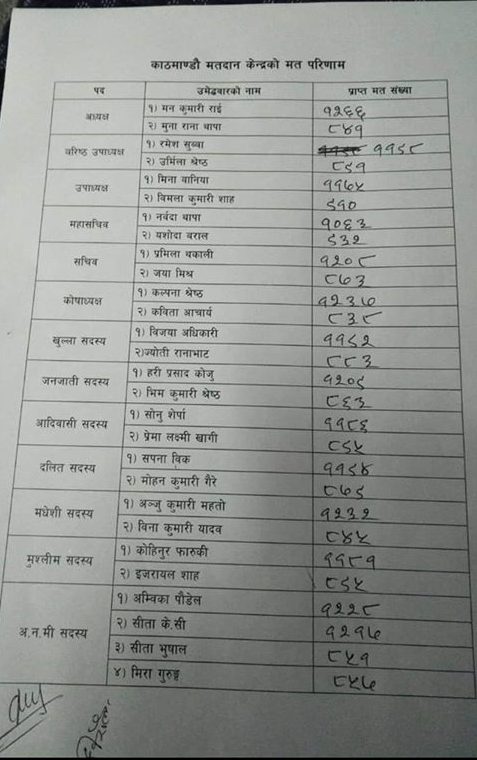 काठमाण्डौ मतदान केन्द्रको मत परिणाम
पद उमेद्धवारको नाम प्राप्त मत संख्या
अध्यक्ष १) मन कुमारी राई १२६६
२) मुना राना थापा ८४१
वरिष्ठ उपाध्यक्ष १) रमेश सुब्बा ११५८
२) उर्मिला श्रेष्ठ ८९१
उपाध्यक्ष १) मिना वानिया ११७५
२) विमला कुमारी शाह ९१०
महासचिव १) नर्वदा थापा १०६३
२) यशोदा बराल ९३२
सचिव १) प्रमिला थकाली १२०८
२) जया मिश्र ८७३
कोषाध्यक्ष १) कल्पना श्रेष्ठ १२३७
२) कविता आचार्य ८३८
खुल्ला सदस्य १) विजया अधिकारी ११९२
२)ज्योती रानाभाट ८८३
जनजाती सदस्य १) हरी प्रसाद कोजु १२०९
२) भिम कुमारी श्रेष्ठ ८६३
आदिवासी सदस्य १) सोनु शेर्पा ११८६
२) प्रेमा लक्ष्मी खागी ८९५
दलित सदस्य १) सपना विक ११९४
२) मोहन कुमारी गैरे ८७९
मधेशी सदस्य १) अञ्जु कुमारी महतो १२३२
२) विना कुमारी यादव ८४५
मुश्लीम सदस्य १) कोहिनुर फारुकी ११८१
२) इजरायल शाह ८९५
अ.न.मी सदस्य १) अम्विका पौडेल १२२८
२) सीता के.सी १२१७
३) सीता भुषाल ८५१
४) मिरा गुरुङ्ग ८५७